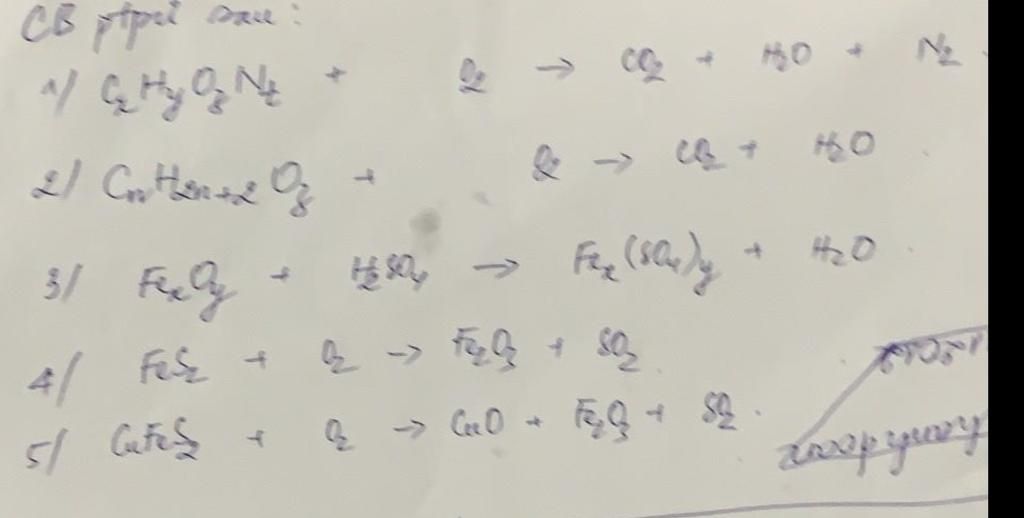 CB ptpư sau:
1) CxHyOzNt + O2 → CO2 + H2O + N2
2) CnH2n+2Oz + O2 → CO2 + H2O
3) FexOy + H2SO4 → Fex(SO4)y + H2O
4) FeS2 + O2 → Fe2O3 + SO2
5) CuFeS2 + O2 → CuO + Fe2O3 + SO2